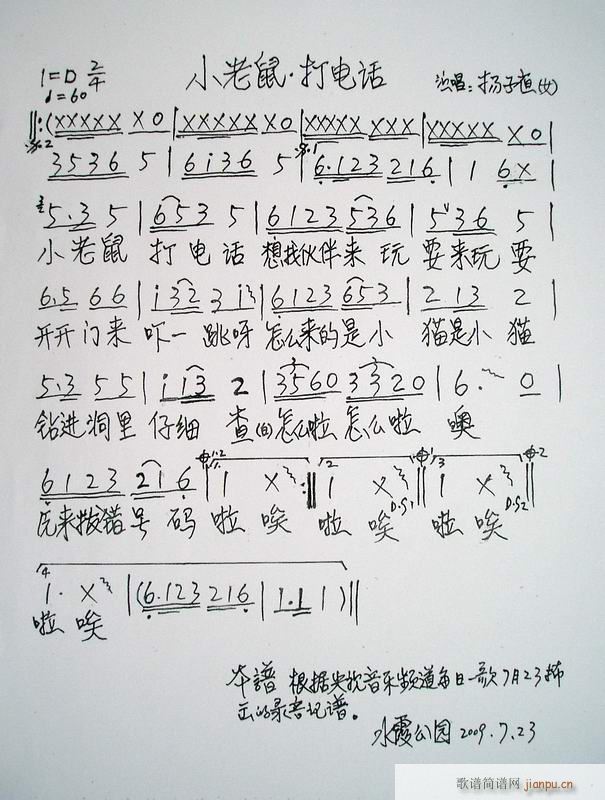 小老鼠·打电话
1=D 2/4
♩=60
演唱：杨子直(女)
‖:(XXXXX X0|XXXXX X0|XXXXX XXX|XXXXX X0|
3536 5|6i36 5|6.123 216|1 6X|
5.3 5|653 5|6123 536|5 36 5|
小老鼠 打电话 想找伙伴来 玩 耍来玩 耍
6.5 66|i32 3 i3|6123 653|2 13 2|
开开门来 咋一跳呀 怎么来的是小 猫是小 猫
5.3 55|i i3 2|3560 3320|6. 0|
钻进洞里 仔细 查(白)怎么啦 怎么啦 噢
6123 216|1 X:‖1 X‖1 X‖
原来拨错号 码 啦 唉 啦 唉 啦 唉
D.S1 D.S2
1. X|(6.123 216|1.1 1)‖
啦 唉
本谱 根据央视音乐频道每日一歌7月23播
出的录音记谱。
水霞公园 2009.7.23
歌谱简谱网 jianpu.cn